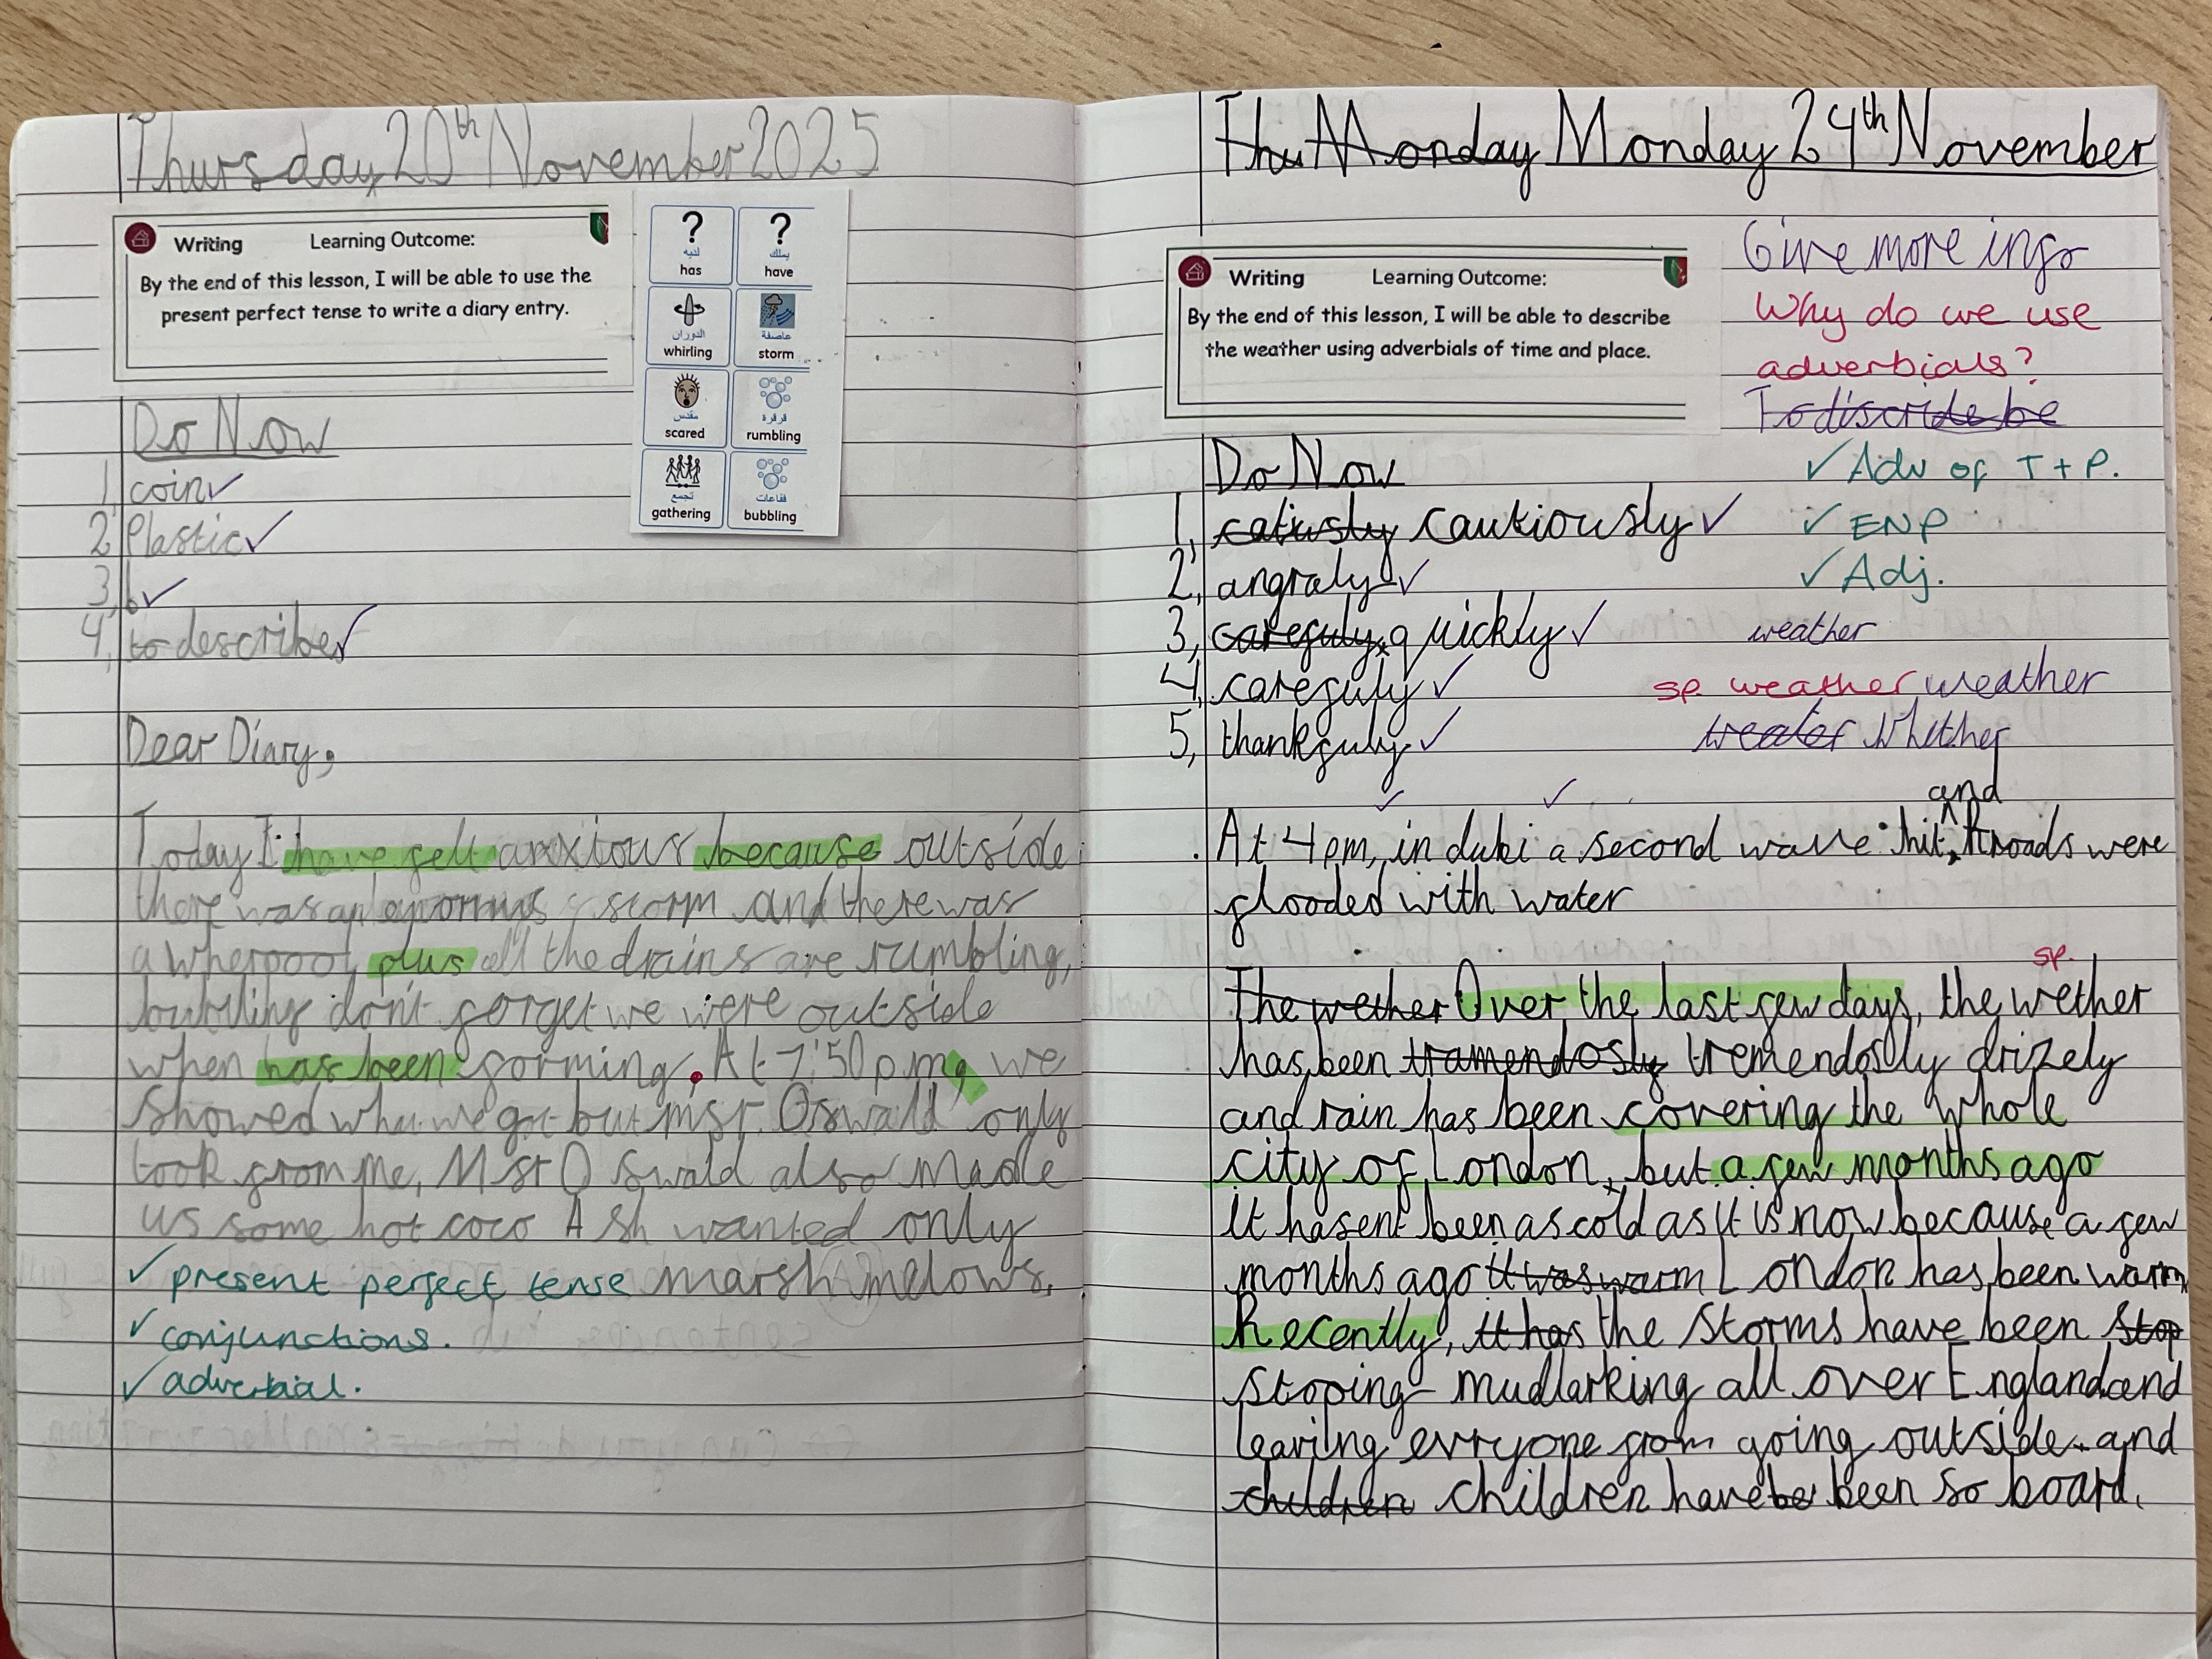 Thursday 20th November 2025
Writing Learning Outcome:
By the end of this lesson, I will be able to use the
present perfect tense to write a diary entry.
? ?
لديه يملك
has have
الدوران عاصفة
whirling storm
مقدس قرقرة
scared rumbling
تجمع فقاعات
gathering bubbling
Do Now
1, coin ✓
2, Plastic ✓
3, b ✓
4, to describe ✓
Dear Diary,
Today I have felt anxitous because outside
there was an storm and there was
a wherpool, plus all the drains are rumbling,
don't forget we were outside
when has been forming. At 7:50 pm, we
showed what we got but misr. Oswald only
took from me, Mst Oswald also made
us some hot coco Ash wanted only
marsh melows.
✓ present perfect tense
✓ conjunctions.
✓ adverbial.
Thu Monday Monday 24th November
Writing Learning Outcome:
By the end of this lesson, I will be able to describe
the weather using adverbials of time and place.
Give more info
Why do we use
adverbials?
To discride be
✓ Adv of T + P.
✓ ENP
✓ Adj.
weather
sp. weather weather
weater Whither
Do Now
1, catiusly cautiously ✓
2, angraly ✓
3, carefuly, quickly ✓
4, carefuly ✓
5, thankfuly ✓
and
At 4pm, in dubi a second wave hit, roads were
flooded with water
sp.
The wether Over the last few days, the wether
has been tramendosly tremendosly drizely
and rain has been covering the whole
city of London, but a few months ago
it hasent been as cold as it is now because a few
months ago it was warm London has been warm
Recently, it has the storms have been stop
stoping mudlarking all over England and
leaving evryone from going outside and
children children have be been so board.